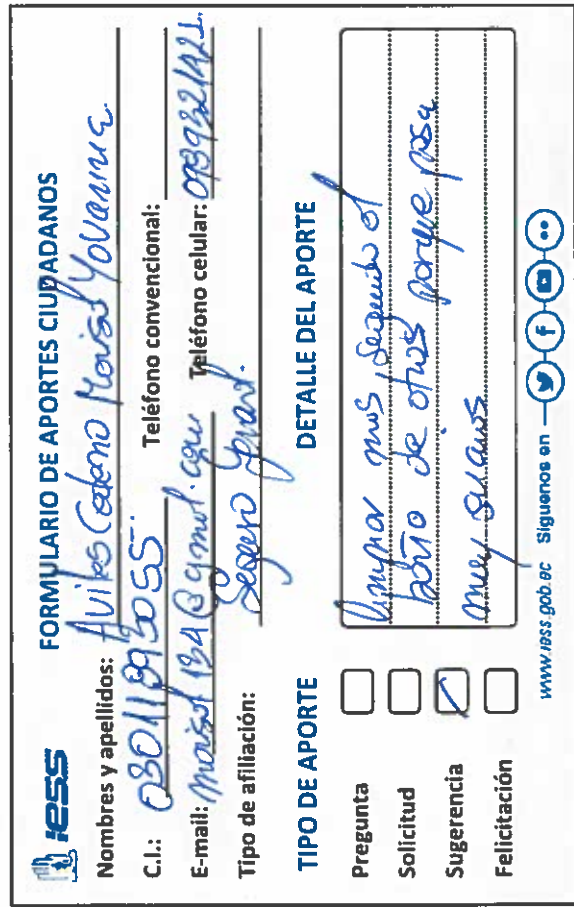 iess
FORMULARIO DE APORTES CIUDADANOS
Nombres y apellidos: Aviles Cedeno Marisol Yovanna
C.I.:
Teléfono convencional:
E-mail: marisol 134@gmail.com Teléfono celular:
Tipo de afiliación: Seguro
TIPO DE APORTE
Pregunta
Solicitud
Sugerencia
Felicitación
DETALLE DEL APORTE
limpiar mas seguido el
baño de otros porque pasa
muy sucios
www.iess.gob.ec Síguenos en